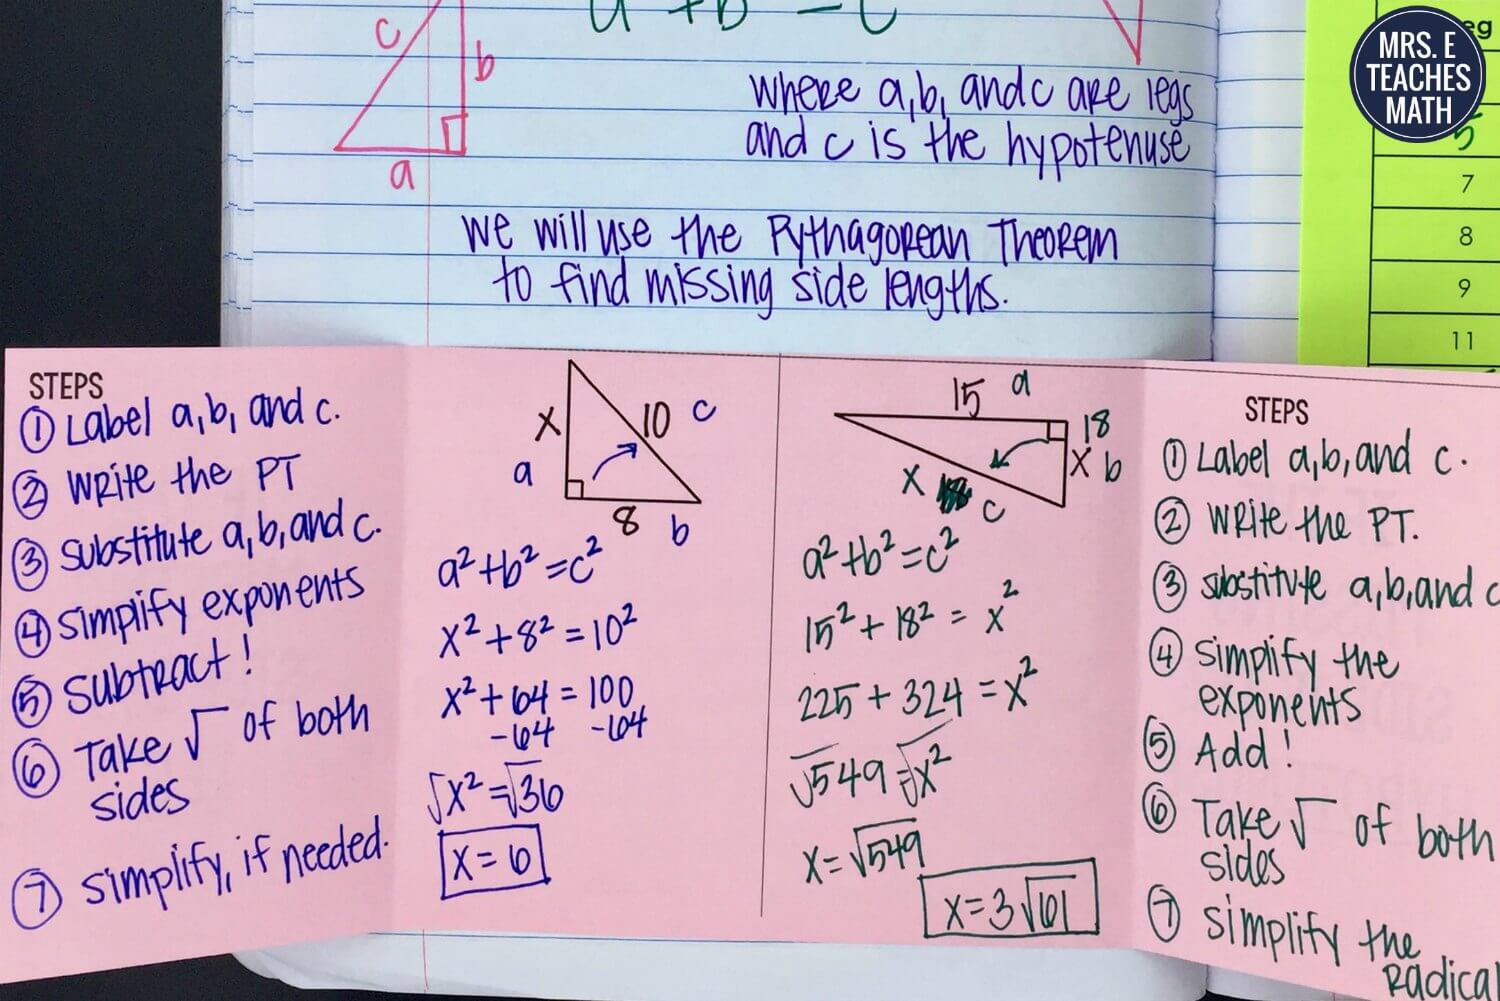 a² + b² = c²
MRS. E
TEACHES
MATH
c
b
a
where a, b, and c are legs
and c is the hypotenuse
5
7
8
9
11
We will use the Pythagorean Theorem
to find missing side lengths.
STEPS
① Label a, b, and c.
② Write the PT
③ Substitute a, b, and c.
④ Simplify exponents
⑤ Subtract!
⑥ Take √ of both
sides
⑦ Simplify, if needed.
x
10 c
a
8 b
a² + b² = c²
x² + 8² = 10²
x² + 64 = 100
-64 -64
√x² = √36
x = 6
15 a
18
x b
x c
a² + b² = c²
15² + 18² = x²
225 + 324 = x²
√549 = √x²
x = √549
x = 3√61
STEPS
① Label a, b, and c.
② Write the PT.
③ Substitute a, b, and c
④ Simplify the
exponents
⑤ Add!
⑥ Take √ of both
sides
⑦ Simplify the
Radical